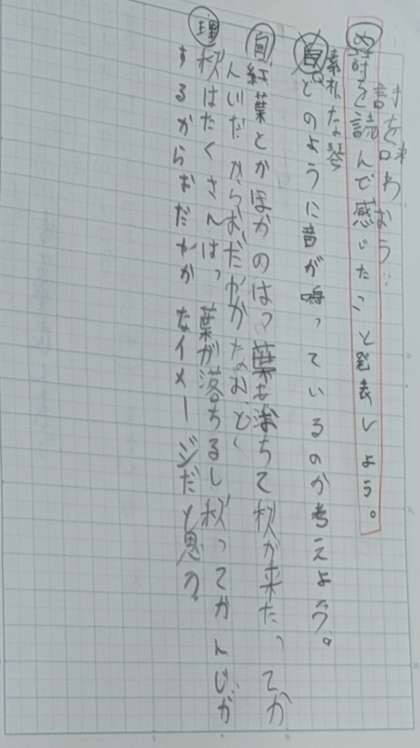 詩を味わおう…
め 詩を読んで感じたこと発表しよう。
素朴な琴
どのように音が鳴っているのか考えよう。
自 紅葉とかほかのはっ葉が落ちて秋が来たってか
んいだからおだやかかなおと
理 秋はたくさんはっ葉が落ちるし秋ってかんじが
するからおだやかなイメージだと思う。